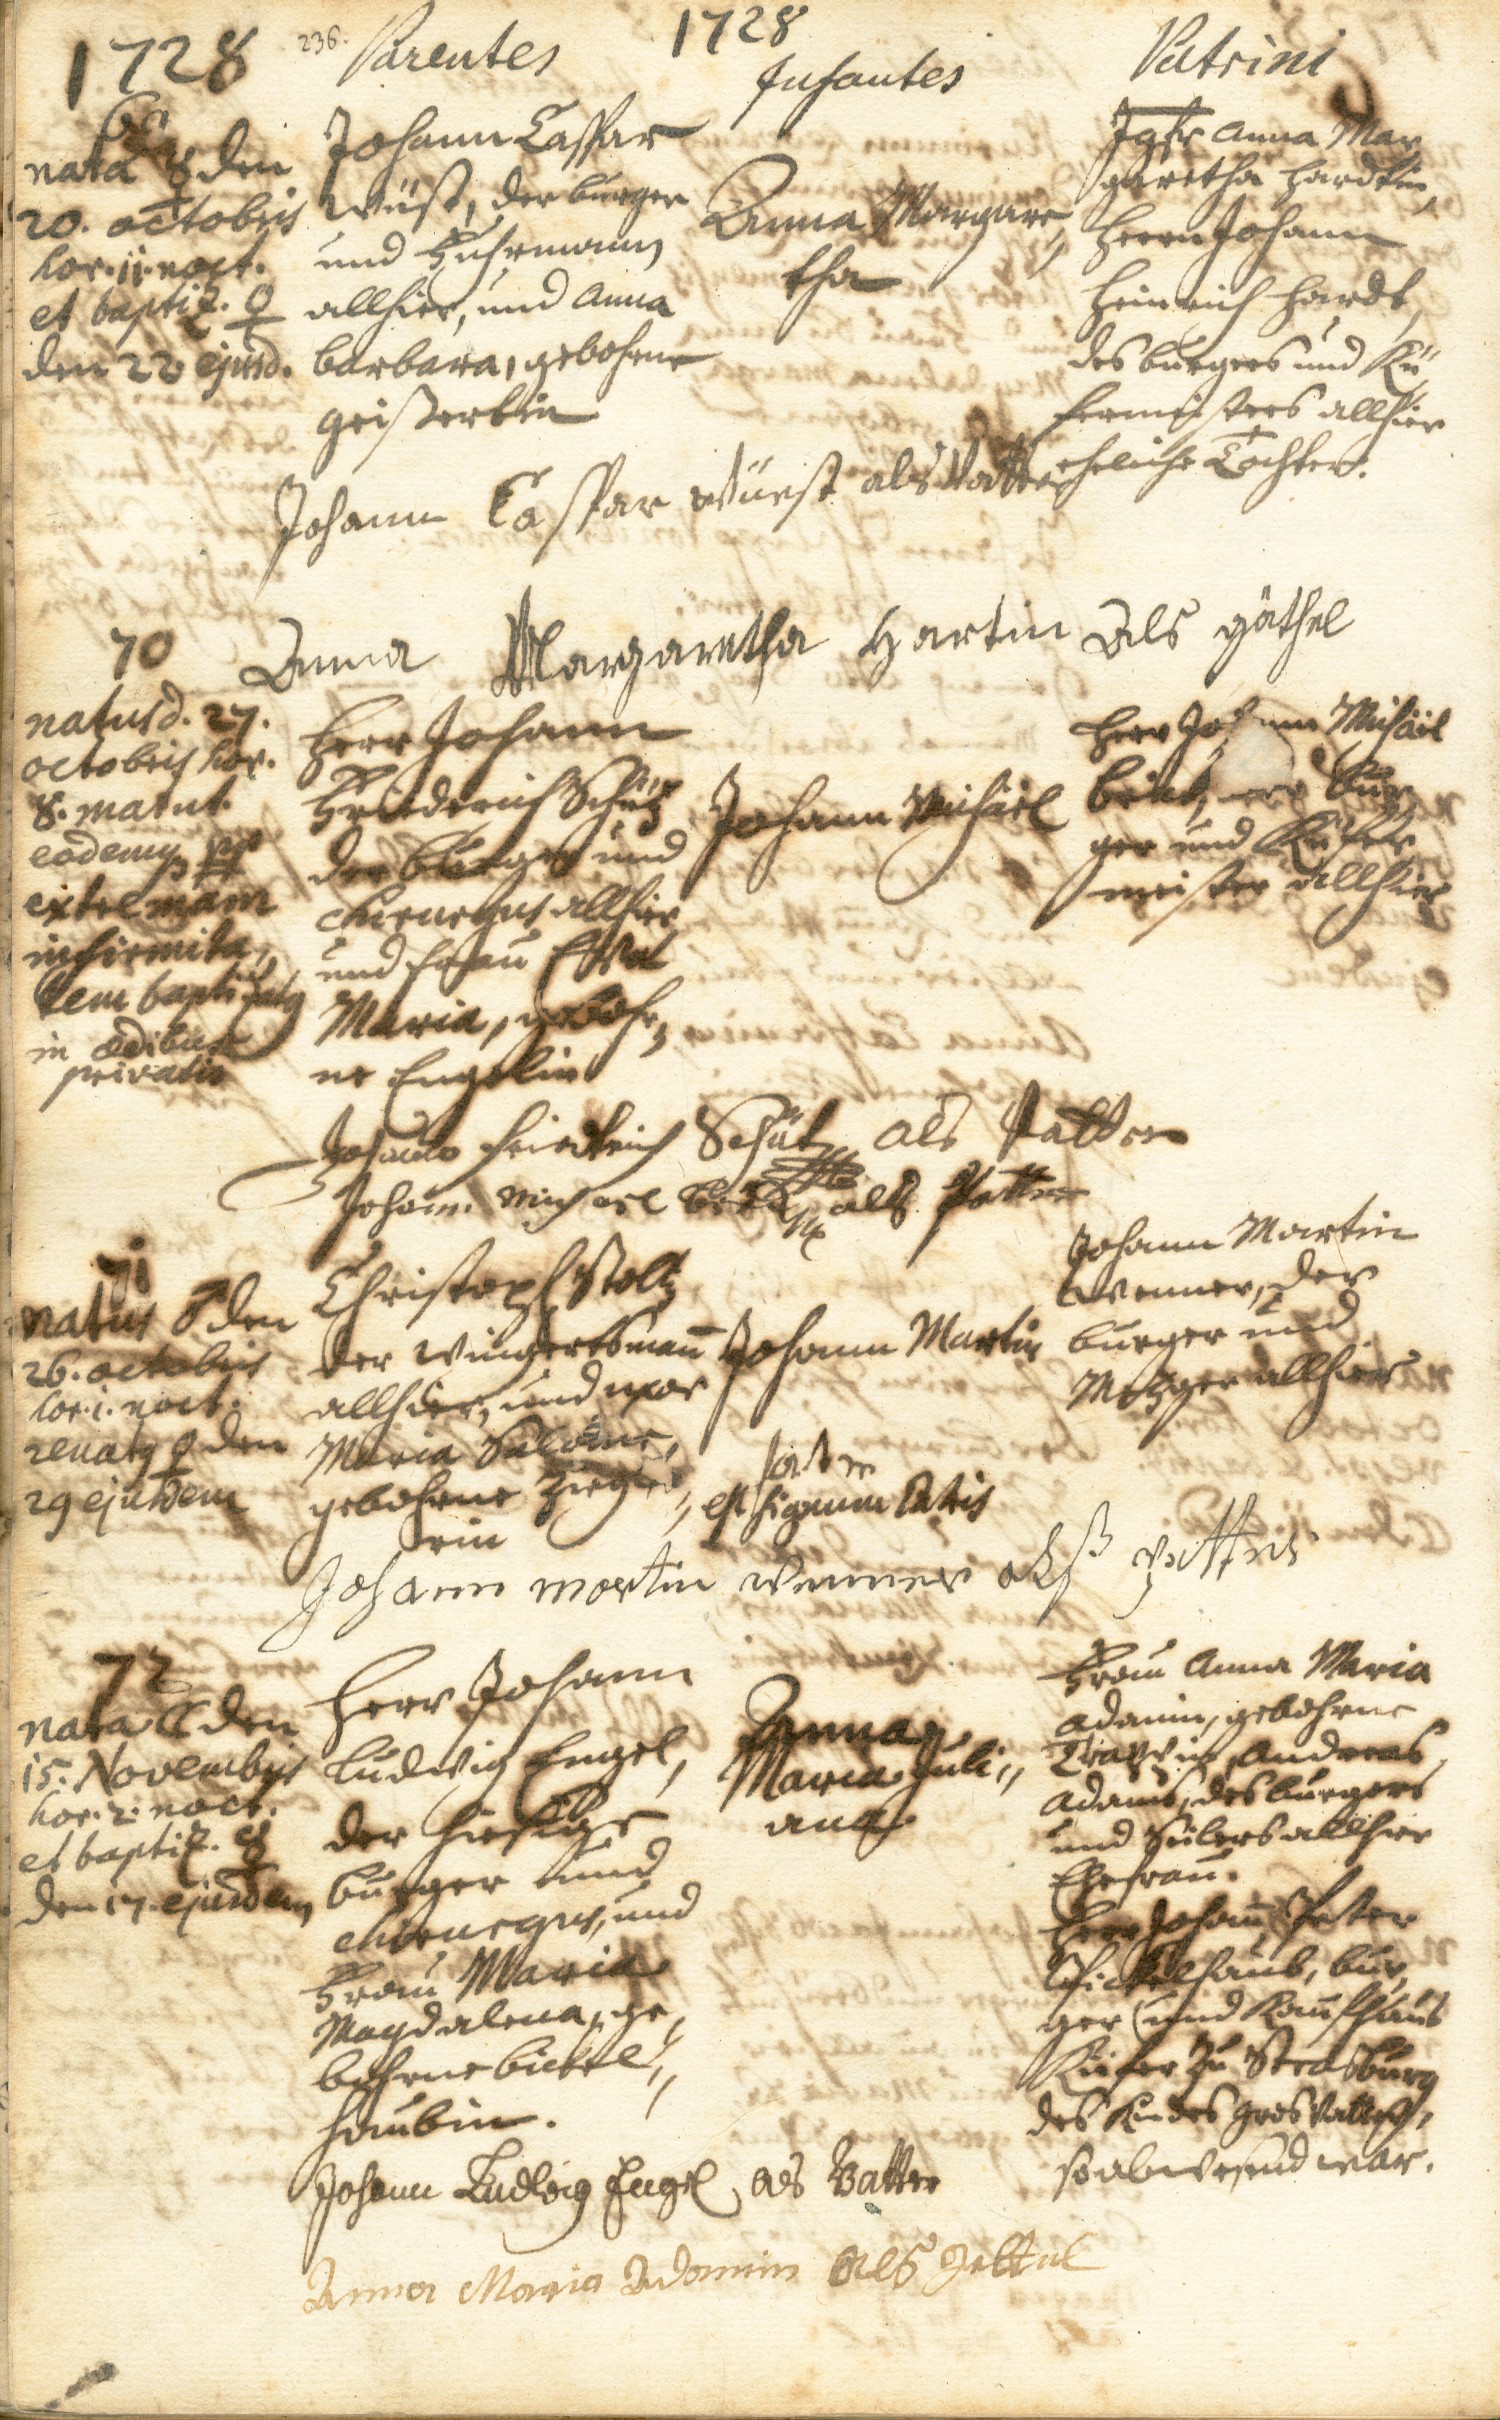 1728
236.
Parentes
1728
Infantes
Patrini
69
nata ☿ den
20. octobris
hor. 11. noct.
et baptiz. ♀
den 22 ejusd.
Johann Caspar
Wüst, der burger
und Fuhrmann
allhier, und Anna
barbara, gebohrne
geisterbin
Anna Margare„
tha
Jgfr Anna Mar
garetha Hardtin,
Herrn Johann
Heinrich Hardt,
des burgers und Kü
fermeisters allhier
eheliche Tochter.
Johann Caspar würst als Vatter
Anna Margaretha Hartin Als göthel
70
natus d. 27.
octobris hor.
8. matut.
eodemq pp
extremam
infirmita„
tem baptizatq
in ædibus
privatis
Herr Johann
Friederich Schütz
der burger und
chirurgus allhier
und frau Eva
Maria, gebohr„
ne Engelin
Johann Michäel
Herr Johann Michäel
der bur
ger und Küfer
meister allhier
Johann Friedrich Schütz als Vatter
Johann Michael als Patter
71
natus ♂ den
26. octobris
hor. 1. noct.
renatq ♀ den
29 ejusdem
Christoph Stoltz
der Wingertsmann
allhier, und uxor
Maria Salome,
gebohrne Ziegle„
rin
Johann Martin
est signum Patris
Johann Martin
Wenner, der
burger und
Metzger allhier
Johann martin wenner alß pfetter
72
nata ☾ den
15. Novembris
hor. 2. noct.
et baptiz. ☿
den 17. ejusdem
Herr Johann
Ludwig Engel,
der hiesige
burger und
chirurgus, und
Frau Maria
Magdalena, ge„
bohrne bickel„
haubin.
Anna
Maria Juli„
ana
Frau Anna Maria
Adamin, gebohrne
Andreas
Adams, des burgers
und Seilers allhier
Ehefrau.
Herr Johann Peter
Pickelhaub, bur
ger und Kauffhaus
Kiefer zu Strasburg
des Kindes Gros Vatter,
so abwesend war.
Johann Ludwig Engel als Vatter
Anna Maria Adamin als Gettel